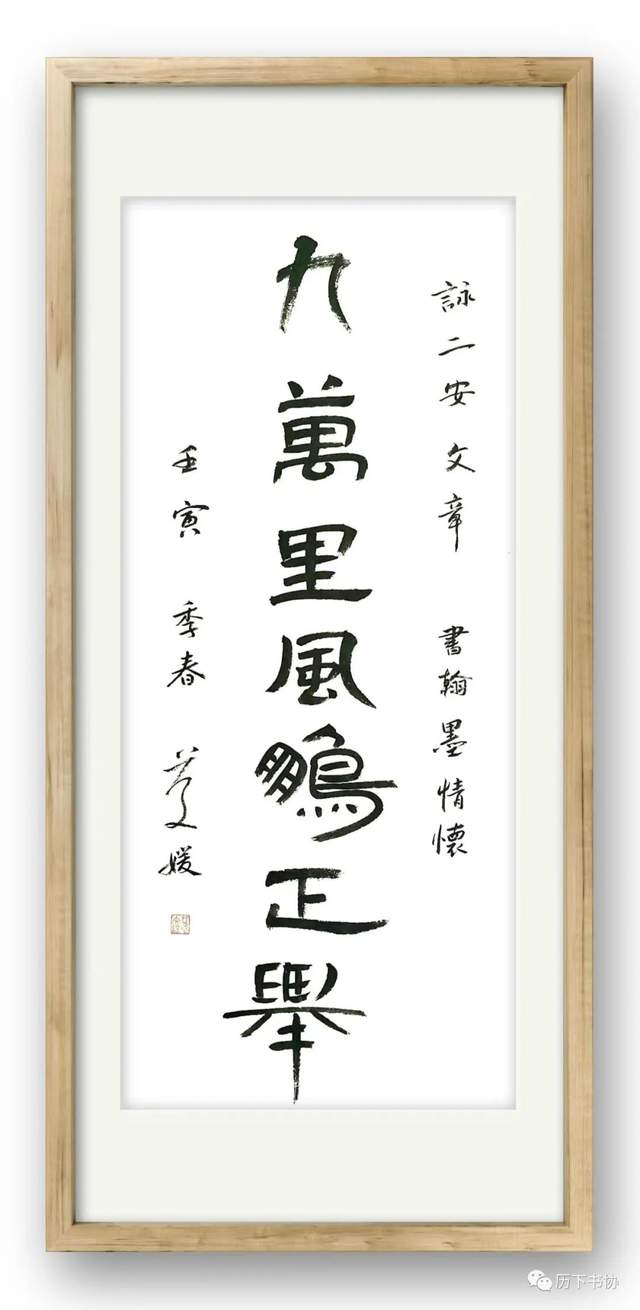 詠二安文章 書翰墨情懷
九萬里風鵬正舉
壬寅 季春
媛
历下书协